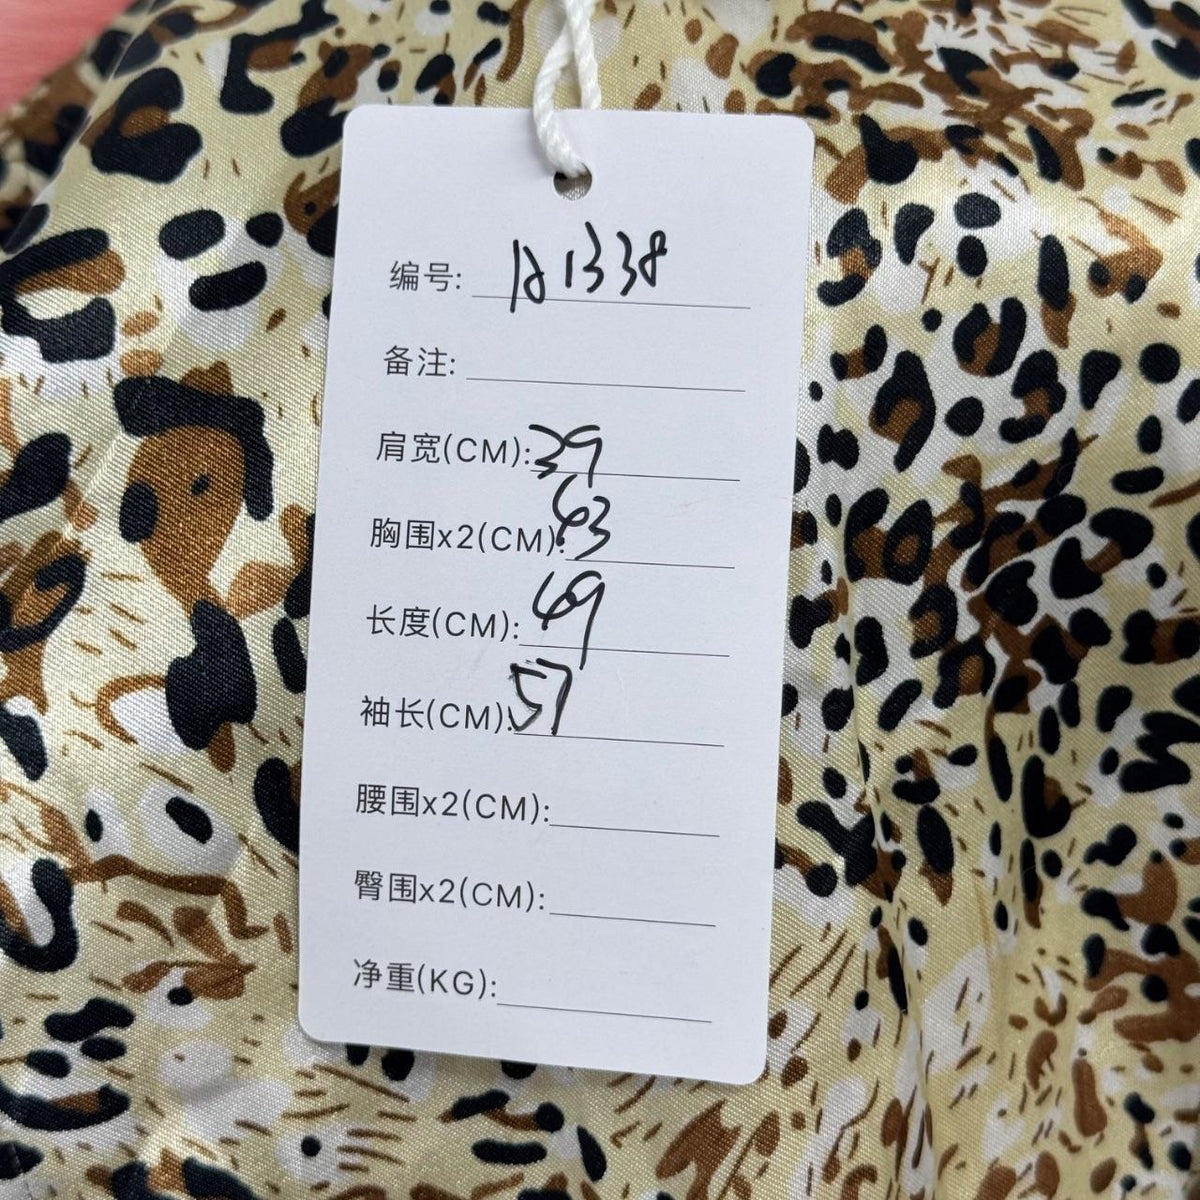 编号: A1338
备注:
肩宽(CM): 39
胸围x2(CM): 63
长度(CM): 69
袖长(CM): 57
腰围x2(CM):
臀围x2(CM):
净重(KG):